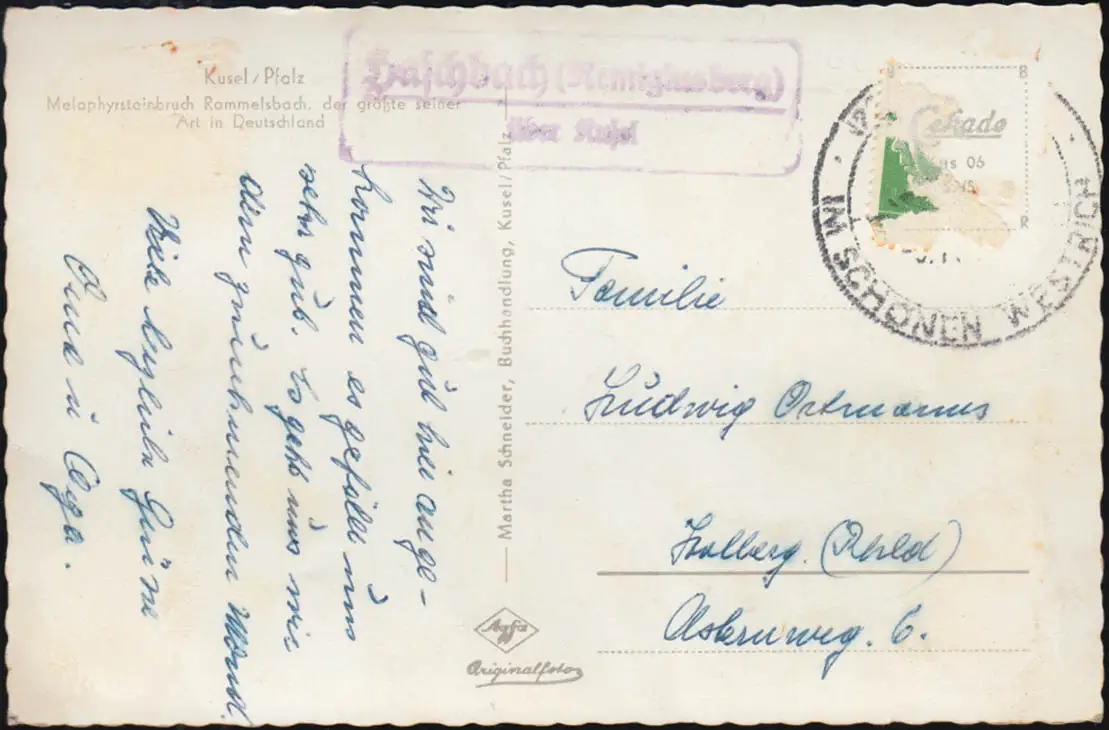 Kusel/Pfalz
Melaphyrsteinbruch Rammelsbach, der größte seiner
Art in Deutschland
Haschbach (Remigiusberg)
über Kusel
Cekade
us 06
IM SCHÖNEN WESTRICH
Wir sind gut hier ange-
kommen es gefällt uns
sehr gut. So geht uns wie
dem zunehmenden Mond.
Viele herzliche Grüße
u
Martha Schneider, Buchhandlung, Kusel/Pfalz
Familie
Ludwig Ostmanns
(Rhld)
Asternweg. 6.
Agfa
Originalfoto